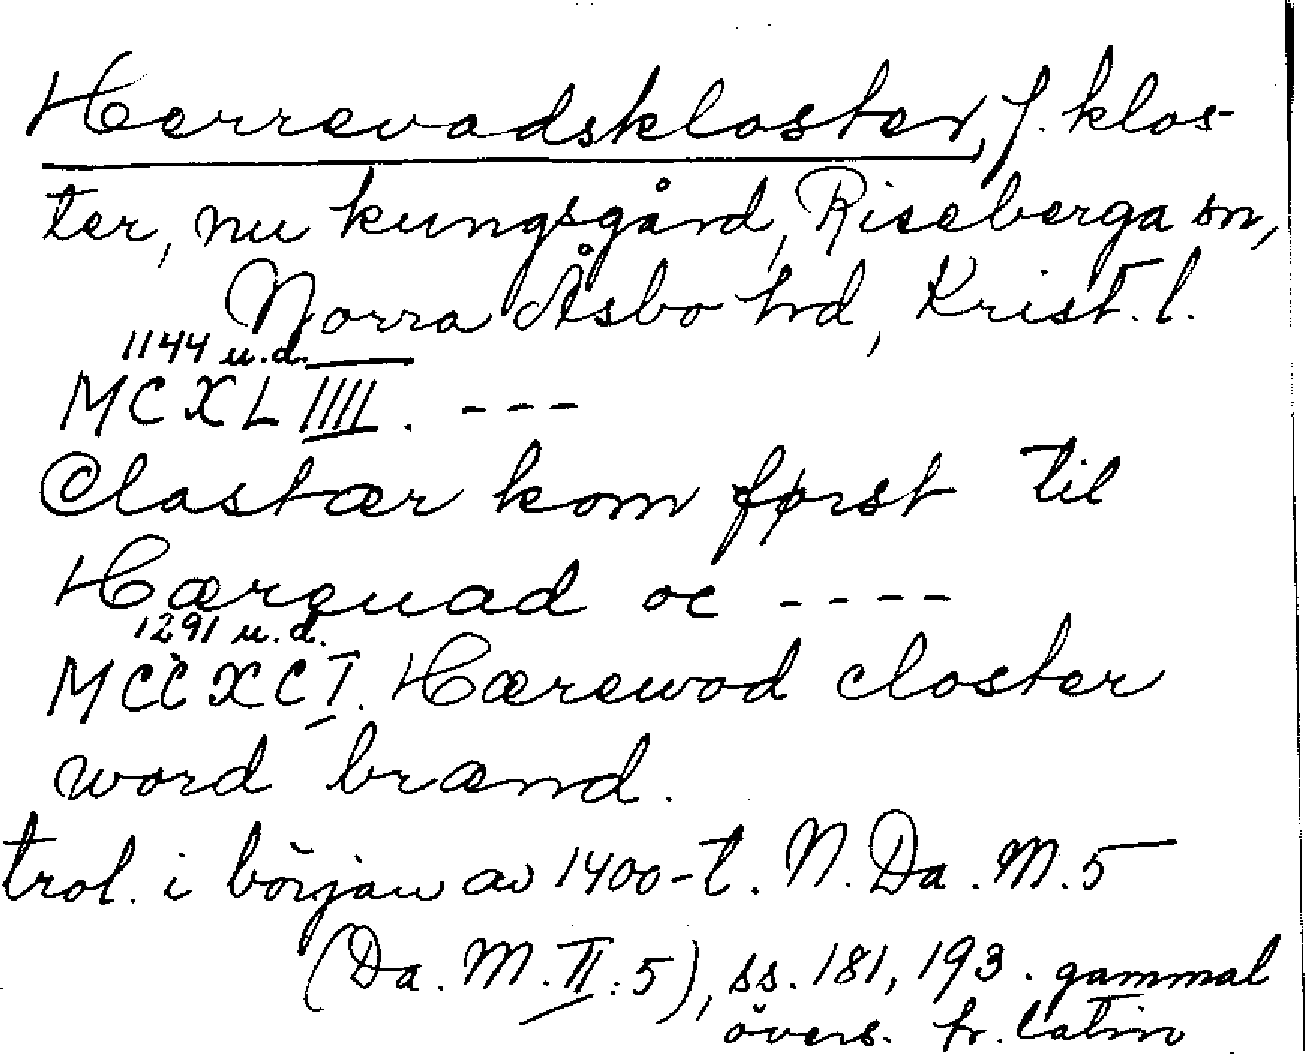 Herrevadskloster, f. klos-
ter, nu kungsgård, Riseberga sn,
Norra Åsbo hd, Krist. l.
1144 u.d.
MCXLIIII. ---
Closter kom først til
Hærquad oc ----
1291 u.d.
MCCXCI. Hærewod closter
word brænd.
trol. i början av 1400-t. N. Da. M. 5
(Da. M. II: 5), ss. 181, 193. gammal
övers. fr. latin